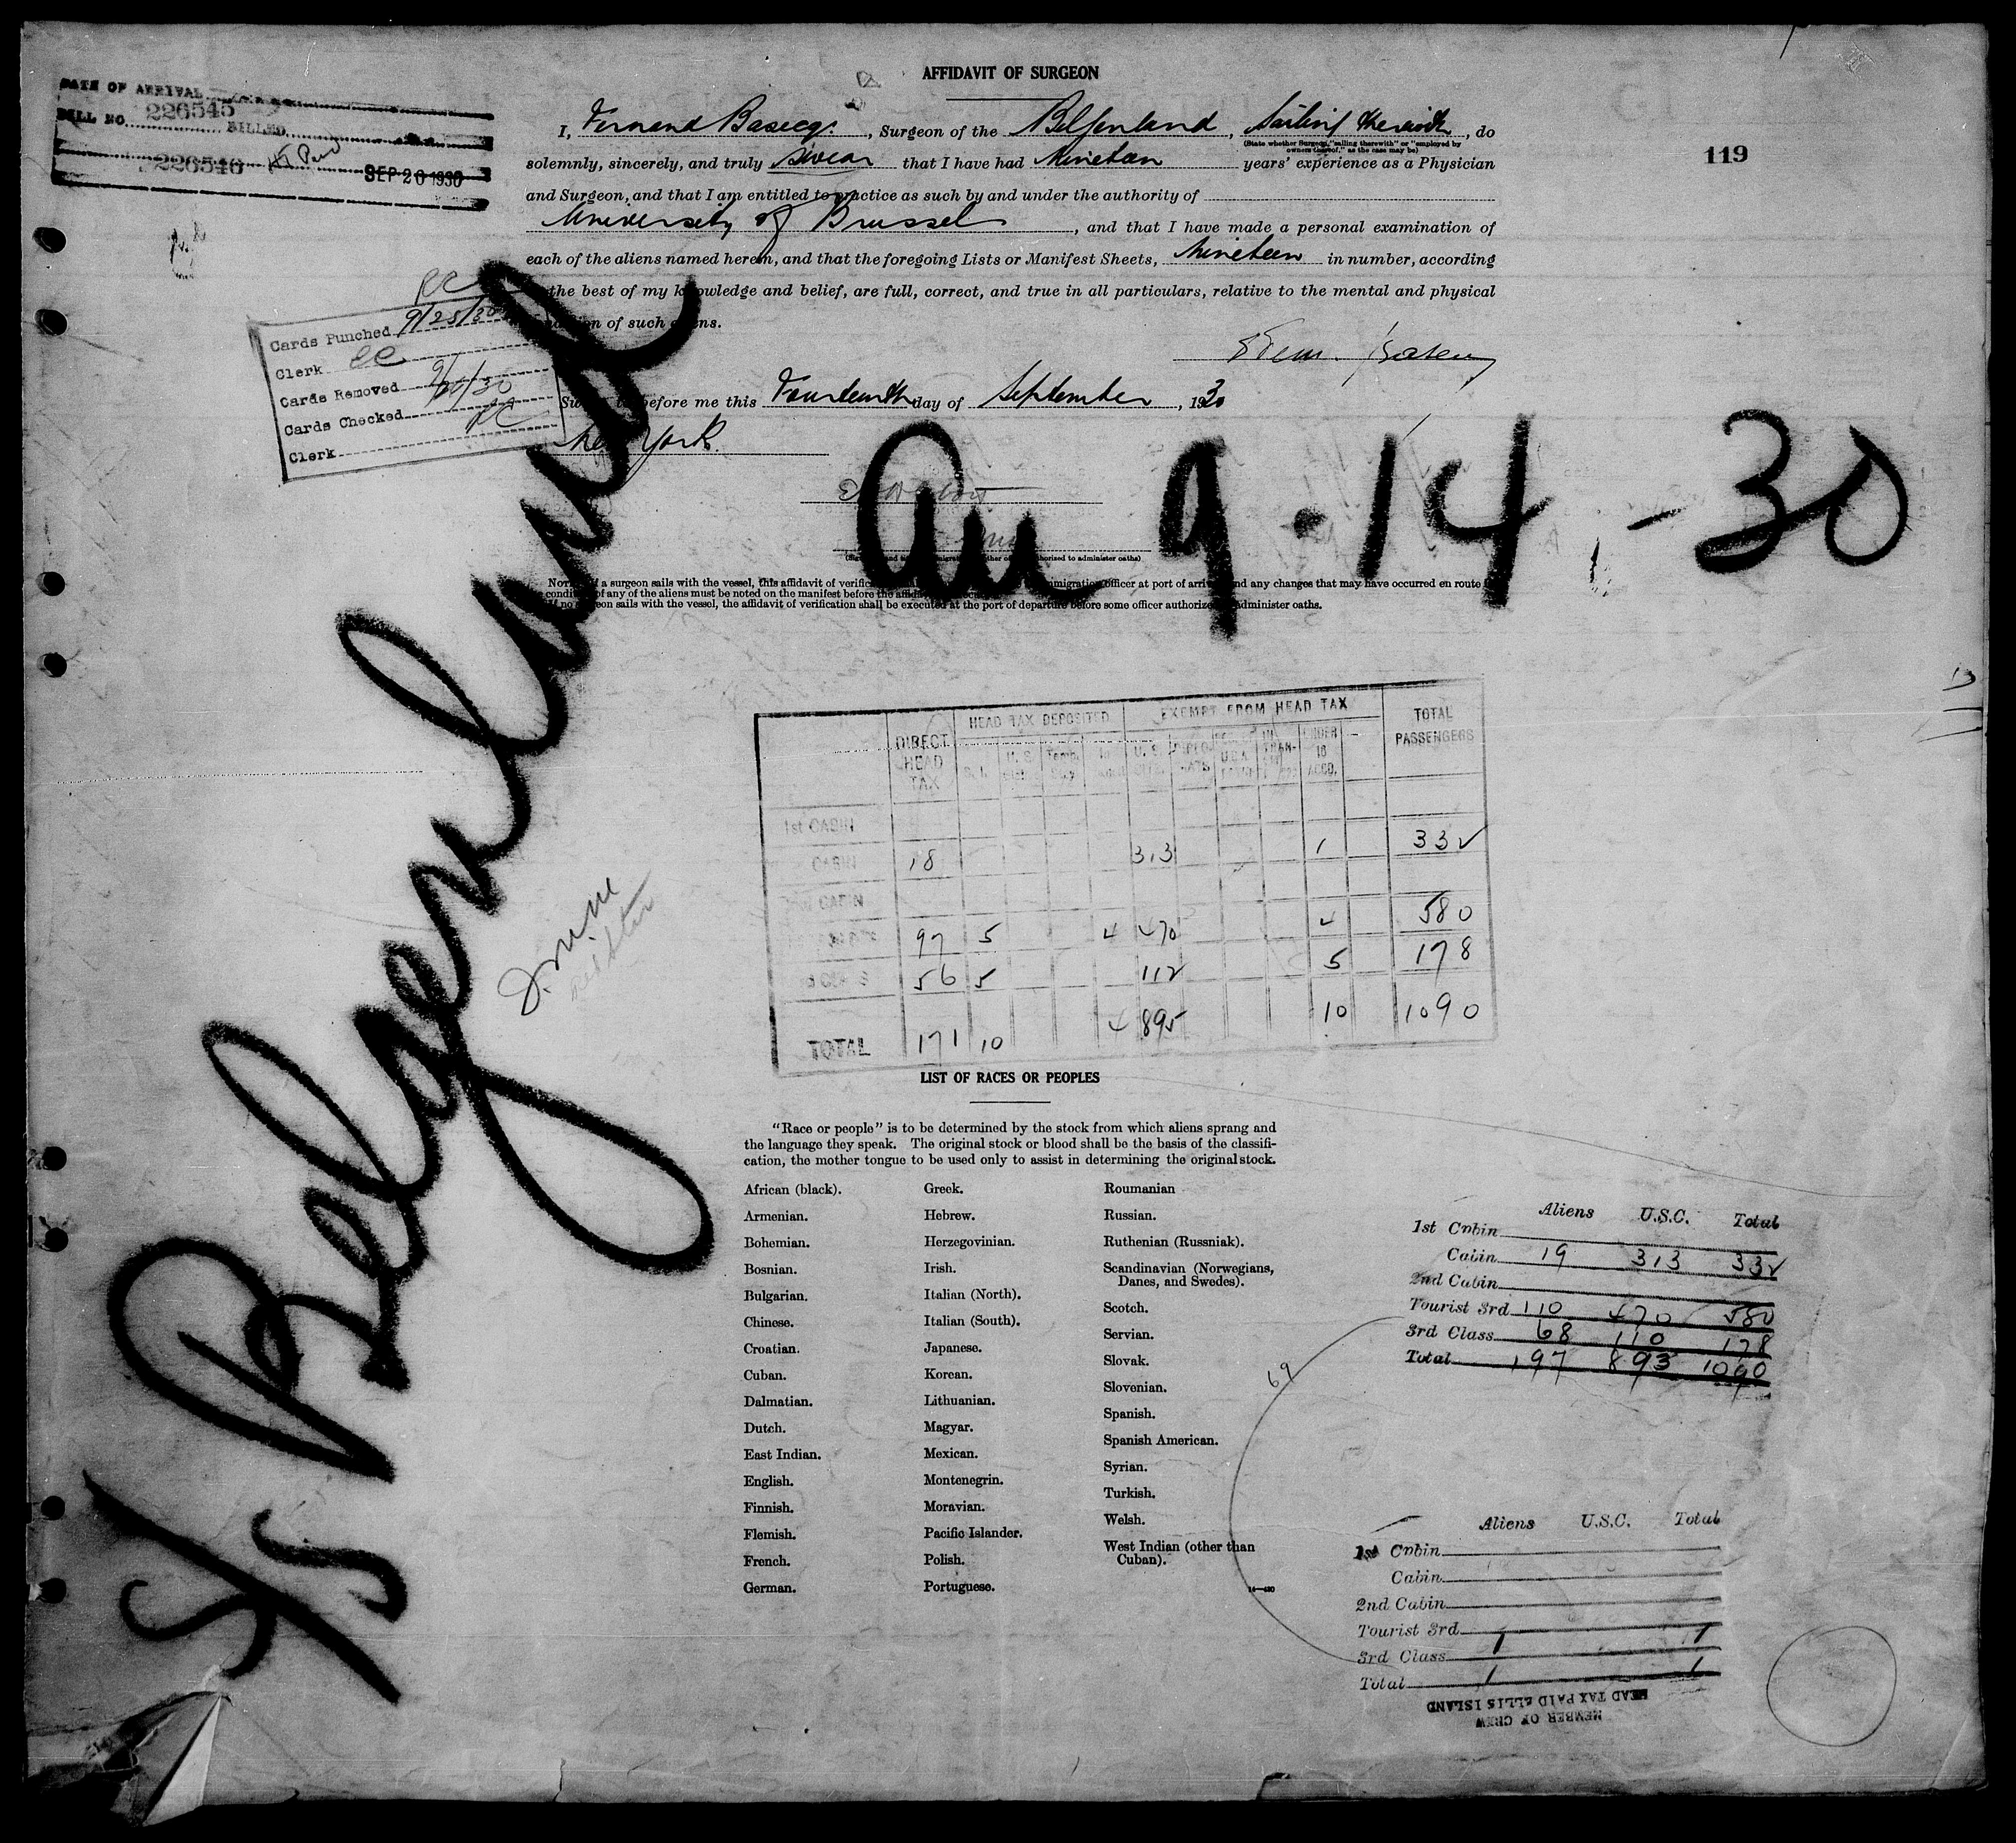 AFFIDAVIT OF SURGEON
119
DATE OF ARRIVAL
BILL NO. 226545 BILLED
226546 SEP 20 1930
I, Fernand Basecq, Surgeon of the Belgenland, Sailing therewith, do
(State whether Surgeon, "sailing therewith" or "employed by
owners thereof," as the case may be)
solemnly, sincerely, and truly swear that I have had Nineteen years' experience as a Physician
and Surgeon, and that I am entitled to practice as such by and under the authority of
University of Brussel, and that I have made a personal examination of
each of the aliens named herein, and that the foregoing Lists or Manifest Sheets, Nineteen in number, according
the best of my knowledge and belief, are full, correct, and true in all particulars, relative to the mental and physical
of such aliens.
Cards Punched 9/25/30
Clerk
Cards Removed
Cards Checked
Clerk
before me this Fourteenth day of September, 1930
New York.
S/S Belgenland
9-14-30
authorized to administer oaths)
NOTE. If a surgeon sails with the vessel, this affidavit of immigration officer at port of arrival and any changes that may have occurred en route
condition of any of the aliens must be noted on the manifest before the
If no surgeon sails with the vessel, the affidavit of verification shall be executed at the port of departure before some officer authorized administer oaths.
DIRECT HEAD TAX HEAD TAX DEPOSITED EXEMPT FROM HEAD TAX TOTAL PASSENGERS
UNDER 16 ACCO.
1st CABIN
CABIN 18 313 1 332
CABIN
97 5 4 470 4 580
56 5 112 5 178
TOTAL 171 10 4 895 10 1090
LIST OF RACES OR PEOPLES
"Race or people" is to be determined by the stock from which aliens sprang and
the language they speak. The original stock or blood shall be the basis of the classifi-
cation, the mother tongue to be used only to assist in determining the original stock.
African (black).
Armenian.
Bohemian.
Bosnian.
Bulgarian.
Chinese.
Croatian.
Cuban.
Dalmatian.
Dutch.
East Indian.
English.
Finnish.
Flemish.
French.
German.
Greek.
Hebrew.
Herzegovinian.
Irish.
Italian (North).
Italian (South).
Japanese.
Korean.
Lithuanian.
Magyar.
Mexican.
Montenegrin.
Moravian.
Pacific Islander.
Polish.
Portuguese.
Roumanian
Russian.
Ruthenian (Russniak).
Scandinavian (Norwegians,
Danes, and Swedes).
Scotch.
Servian.
Slovak.
Slovenian.
Spanish.
Spanish American.
Syrian.
Turkish.
Welsh.
West Indian (other than
Cuban).
Aliens U.S.C. Total
1st Cabin
Cabin 19 313 332
2nd Cabin
Tourist 3rd 110 470 580
3rd Class 68 110 178
Total 197 893 1090
69
Aliens U.S.C. Total
1st Cabin
Cabin
2nd Cabin
Tourist 3rd
3rd Class 1 1
Total 1 1
MEMBER OF CREW
HEAD TAX PAID ELLIS ISLAND